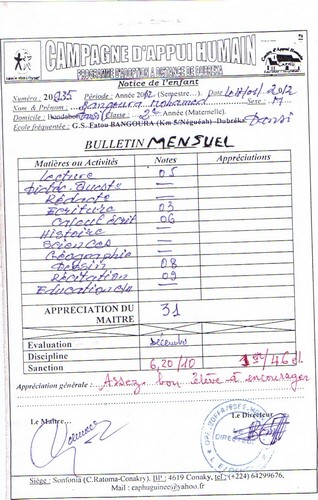 CAMPAGNE D'APPUI HUMAIN
PROGRAMME D'ADOPTION A DISTANCE DE DUBREKA
Notice de l'enfant
Numéro : 20 035 Période : Année 2012 (Serpestre…). Date 2012
Nom & Prénoms : Bangoura Mohamed Sexe : M
Domicile : Classe : 2e Année (Maternelle).
Ecole fréquentée : G.S. Fatou BANGOURA (Km 5/Néguéah)-Dubréka
BULLETIN MENSUEL
Matières ou Activités Notes Appréciations
Lecture 05
Dictée-Quests —
Rédacto —
Ecriture 03
Calcul écrit 06
Histoire —
Sciences —
Géographie —
Dessin 08
Récitation 09
Education —
APPRECIATION DU MAITRE 31
Evaluation Décembre
Discipline
Sanction 6,20/10 1er/46 el.
Appréciation générale : Assez-bon élève à encourager
Le Maître... Le Directeur
Siège : Sonfonia (C.Ratoma-Conakry), BP : 4619 Conaky, tel :(+224) 64299676,
Mail : caphuguinee@yahoo.fr